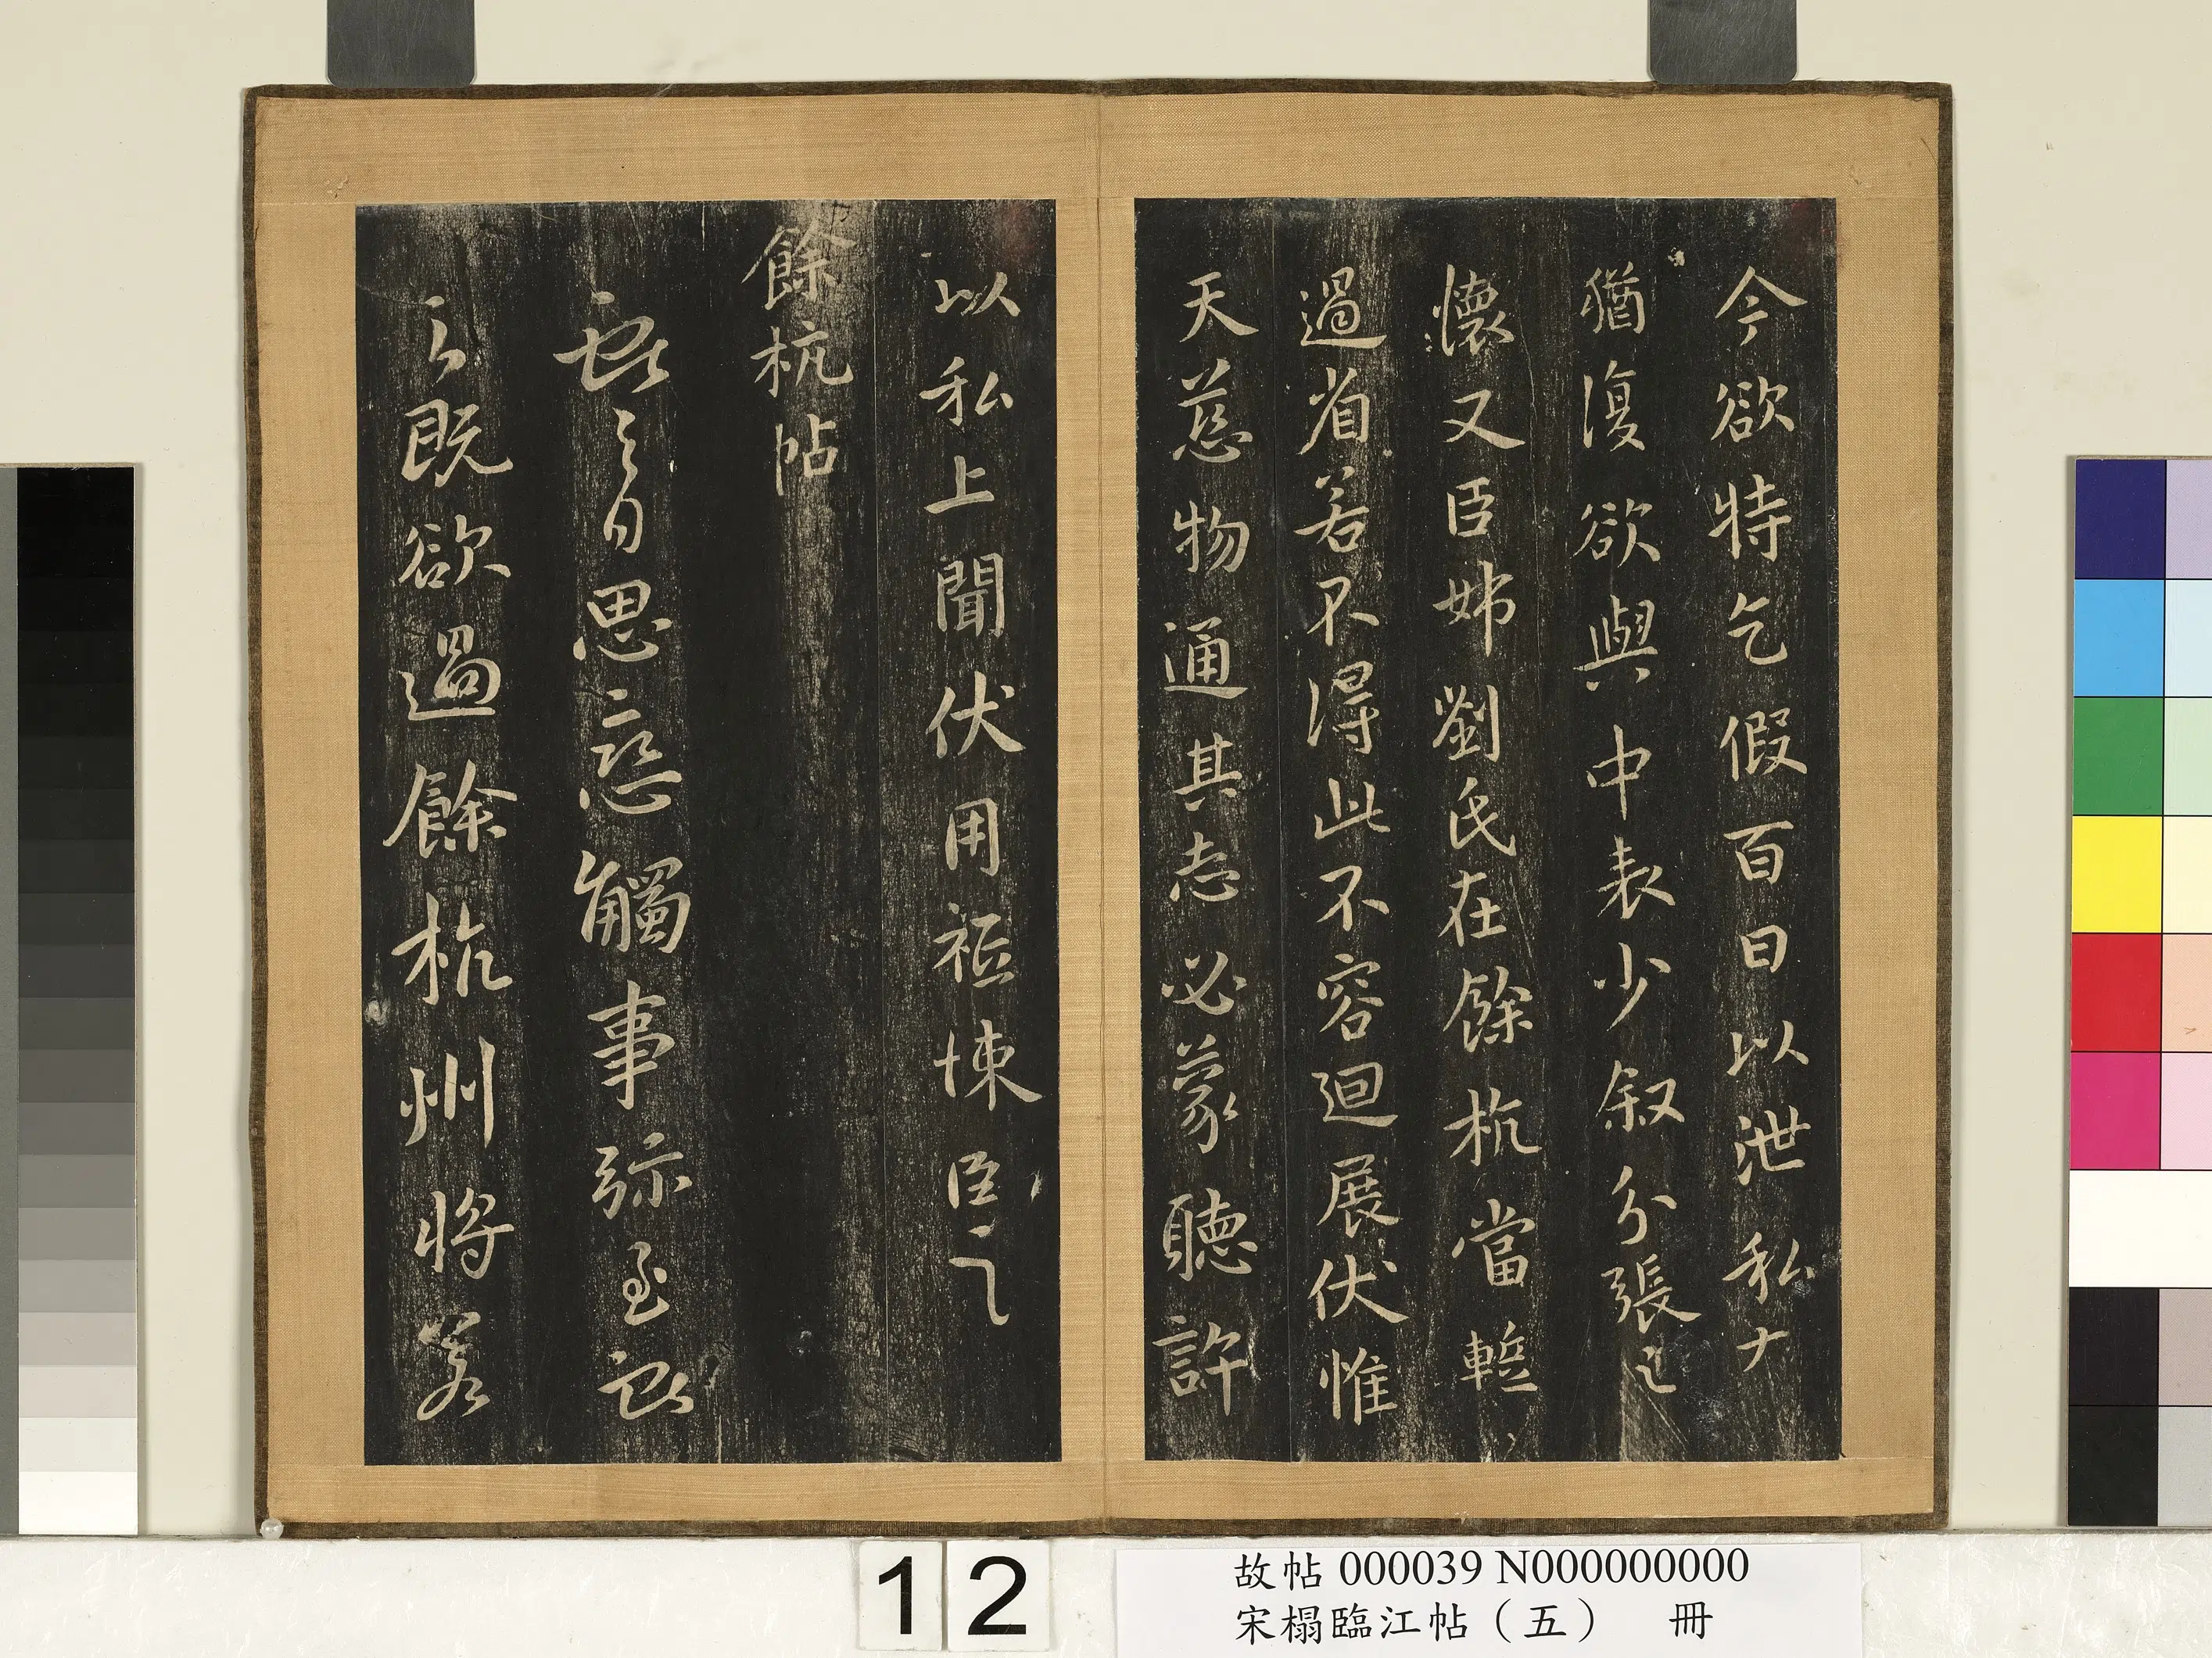 今欲特乞假百日以泄私寸
猶復欲與中表少叙分張之
懷又臣姊劉氏在餘杭當蹔
過省若不得此不容迴展伏惟
天慈物通其志必蒙聽許
以私上聞伏用悚臣之
餘杭帖
思戀觸事弥至
既欲過餘杭州將若
12
故帖 000039 N000000000
宋榻臨江帖（五） 冊